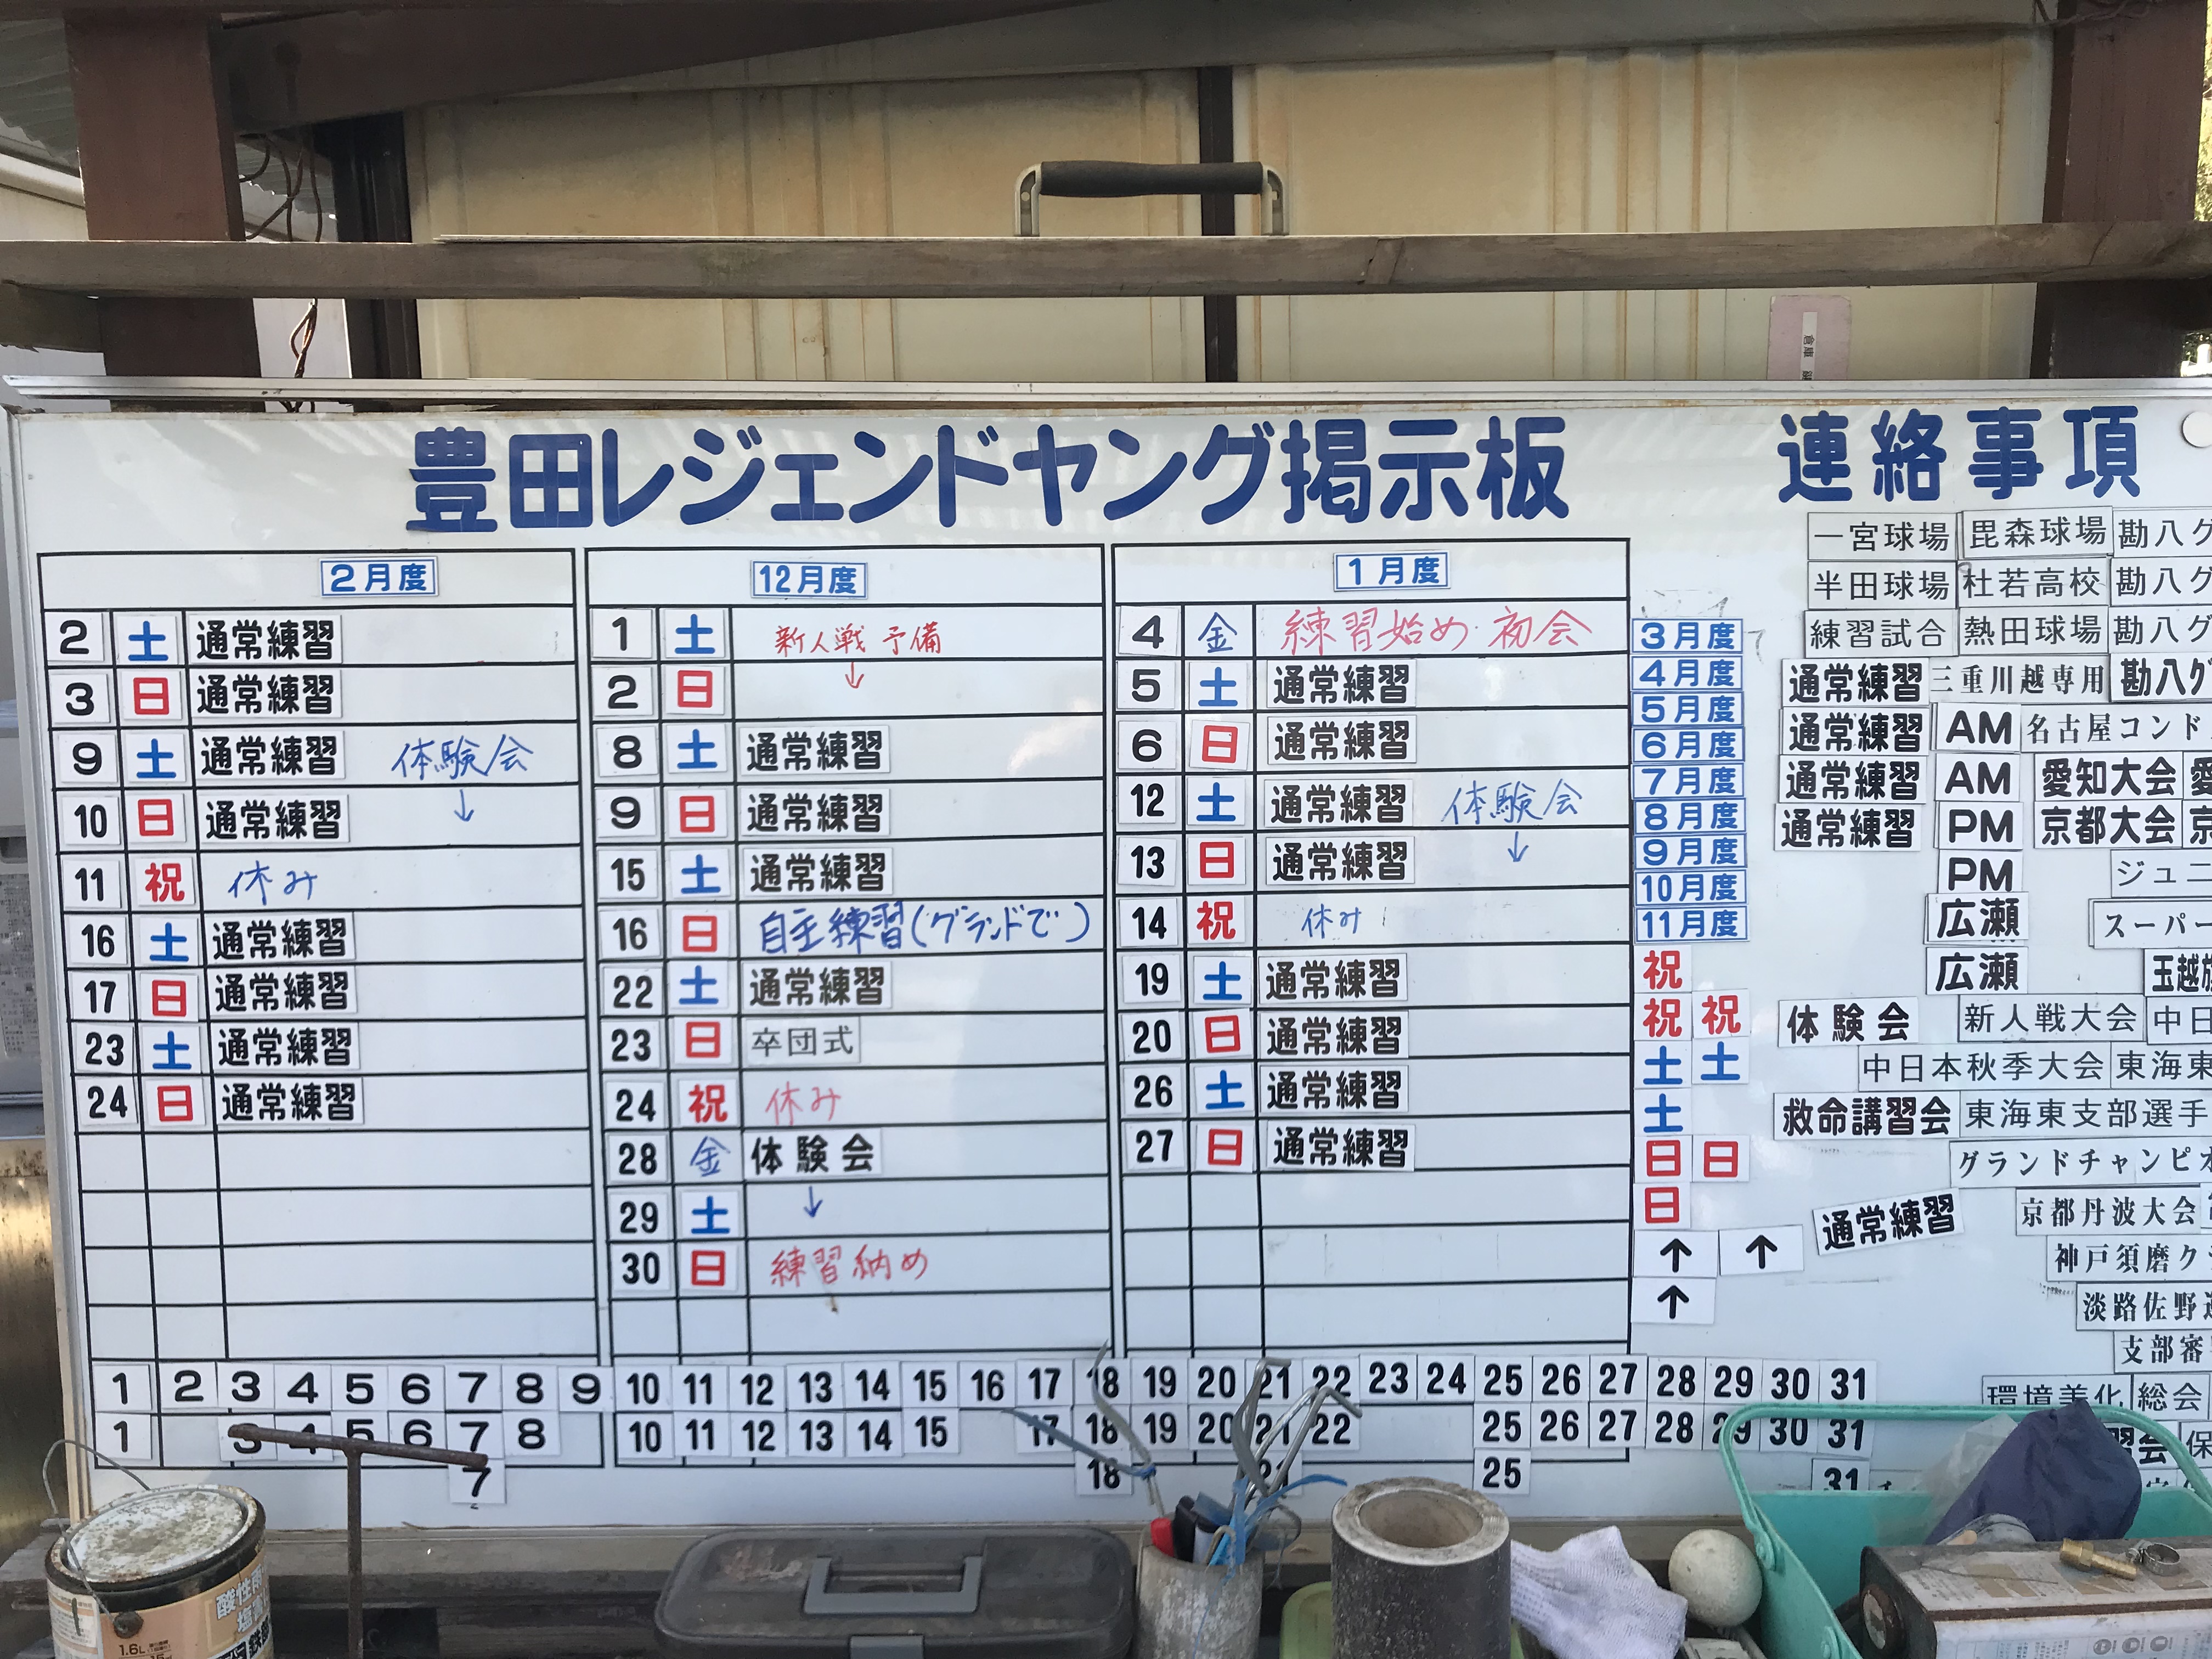 豊田レジェンドヤング掲示板
連絡事項
2月度
2 土 通常練習
3 日 通常練習
9 土 通常練習 体験会
10 日 通常練習 ↓
11 祝 休み
16 土 通常練習
17 日 通常練習
23 土 通常練習
24 日 通常練習
12月度
1 土 新人戦 予備
2 日 ↓
8 土 通常練習
9 日 通常練習
15 土 通常練習
16 日 自主練習(グランドで)
22 土 通常練習
23 日 卒団式
24 祝 休み
28 金 体験会
29 土 ↓
30 日 練習納め
1月度
4 金 練習始め 初会
5 土 通常練習
6 日 通常練習
12 土 通常練習 体験会
13 日 通常練習 ↓
14 祝 休み
19 土 通常練習
20 日 通常練習
26 土 通常練習
27 日 通常練習
3月度
4月度
5月度
6月度
7月度
8月度
9月度
10月度
11月度
祝
祝 祝
土 土
土
日 日
日
↑ ↑
↑
一宮球場 毘森球場 勘八グ
半田球場 杜若高校 勘八グ
練習試合 熱田球場 勘八グ
通常練習 三重川越専用 勘八グ
通常練習 AM 名古屋コンド
通常練習 AM 愛知大会
通常練習 PM 京都大会
PM ジュニ
広瀬 スーパー
広瀬 玉越
体験会 新人戦大会 中日
中日本秋季大会 東海東
救命講習会 東海東支部選手
グランドチャンピオ
京都丹波大会
通常練習
神戸須磨ク
淡路佐野
支部審
環境美化 総会
習会 保
1 2 3 4 5 6 7 8 9 10 11 12 13 14 15 16 17 18 19 20 21 22 23 24 25 26 27 28 29 30 31
1 3 4 5 6 7 8 10 11 12 13 14 15 17 18 19 20 21 22 25 26 27 28 29 30 31
7 18 21 25 31
倉庫
酸性雨
1.6L